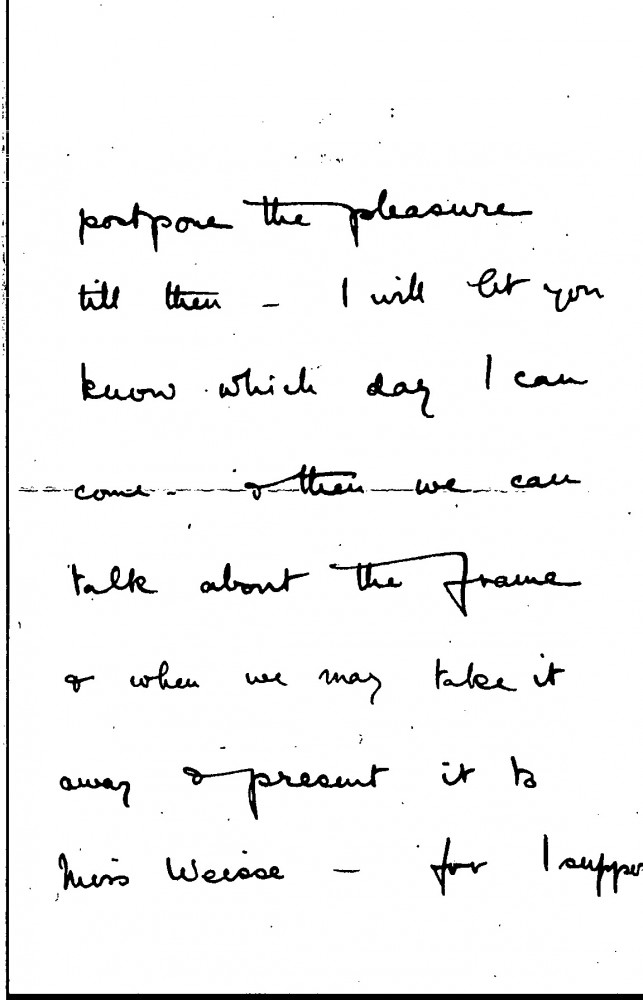 postpone the pleasure
till then – I will let you
know which day I can
come – & then we can
talk about the frame
& when we may take it
away & present it to
Miss Weisse – for I suppos